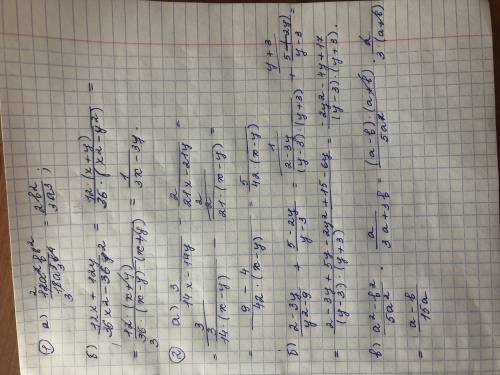 ① а) = 2b² / 3a³ ;
б) 12x + 12y / 36x² - 36y² = 12 · (x+y) / 36 · (x² - y²) =
= 12 · (x+y) / 36 · (x-y) (x+y) = 1 / 3x - 3y .
② а) 3 / 14x - 14y - 2 / 21x - 21y =
= 3 / 14 · (x-y) - 2 / 21 · (x-y) =
= 9 - 4 / 42 · (x-y) = 5 / 42 · (x-y)
б) 2 - 3y / y² - 9 + 5 - 2y / y - 3 = 2 - 3y / (y-3) (y+3) + 5 - 2y / y - 3 =
= 2 - 3y + 5y - 2y² + 15 - 6y / (y-3) · (y+3) = -2y² - 4y + 17 / (y-3) · (y+3) .
в) a² - b² / 5a² · a / 3a + 3b = (a-b) · (a+b) / 5a² · a / 3 · (a+b)
= a - b / 15a